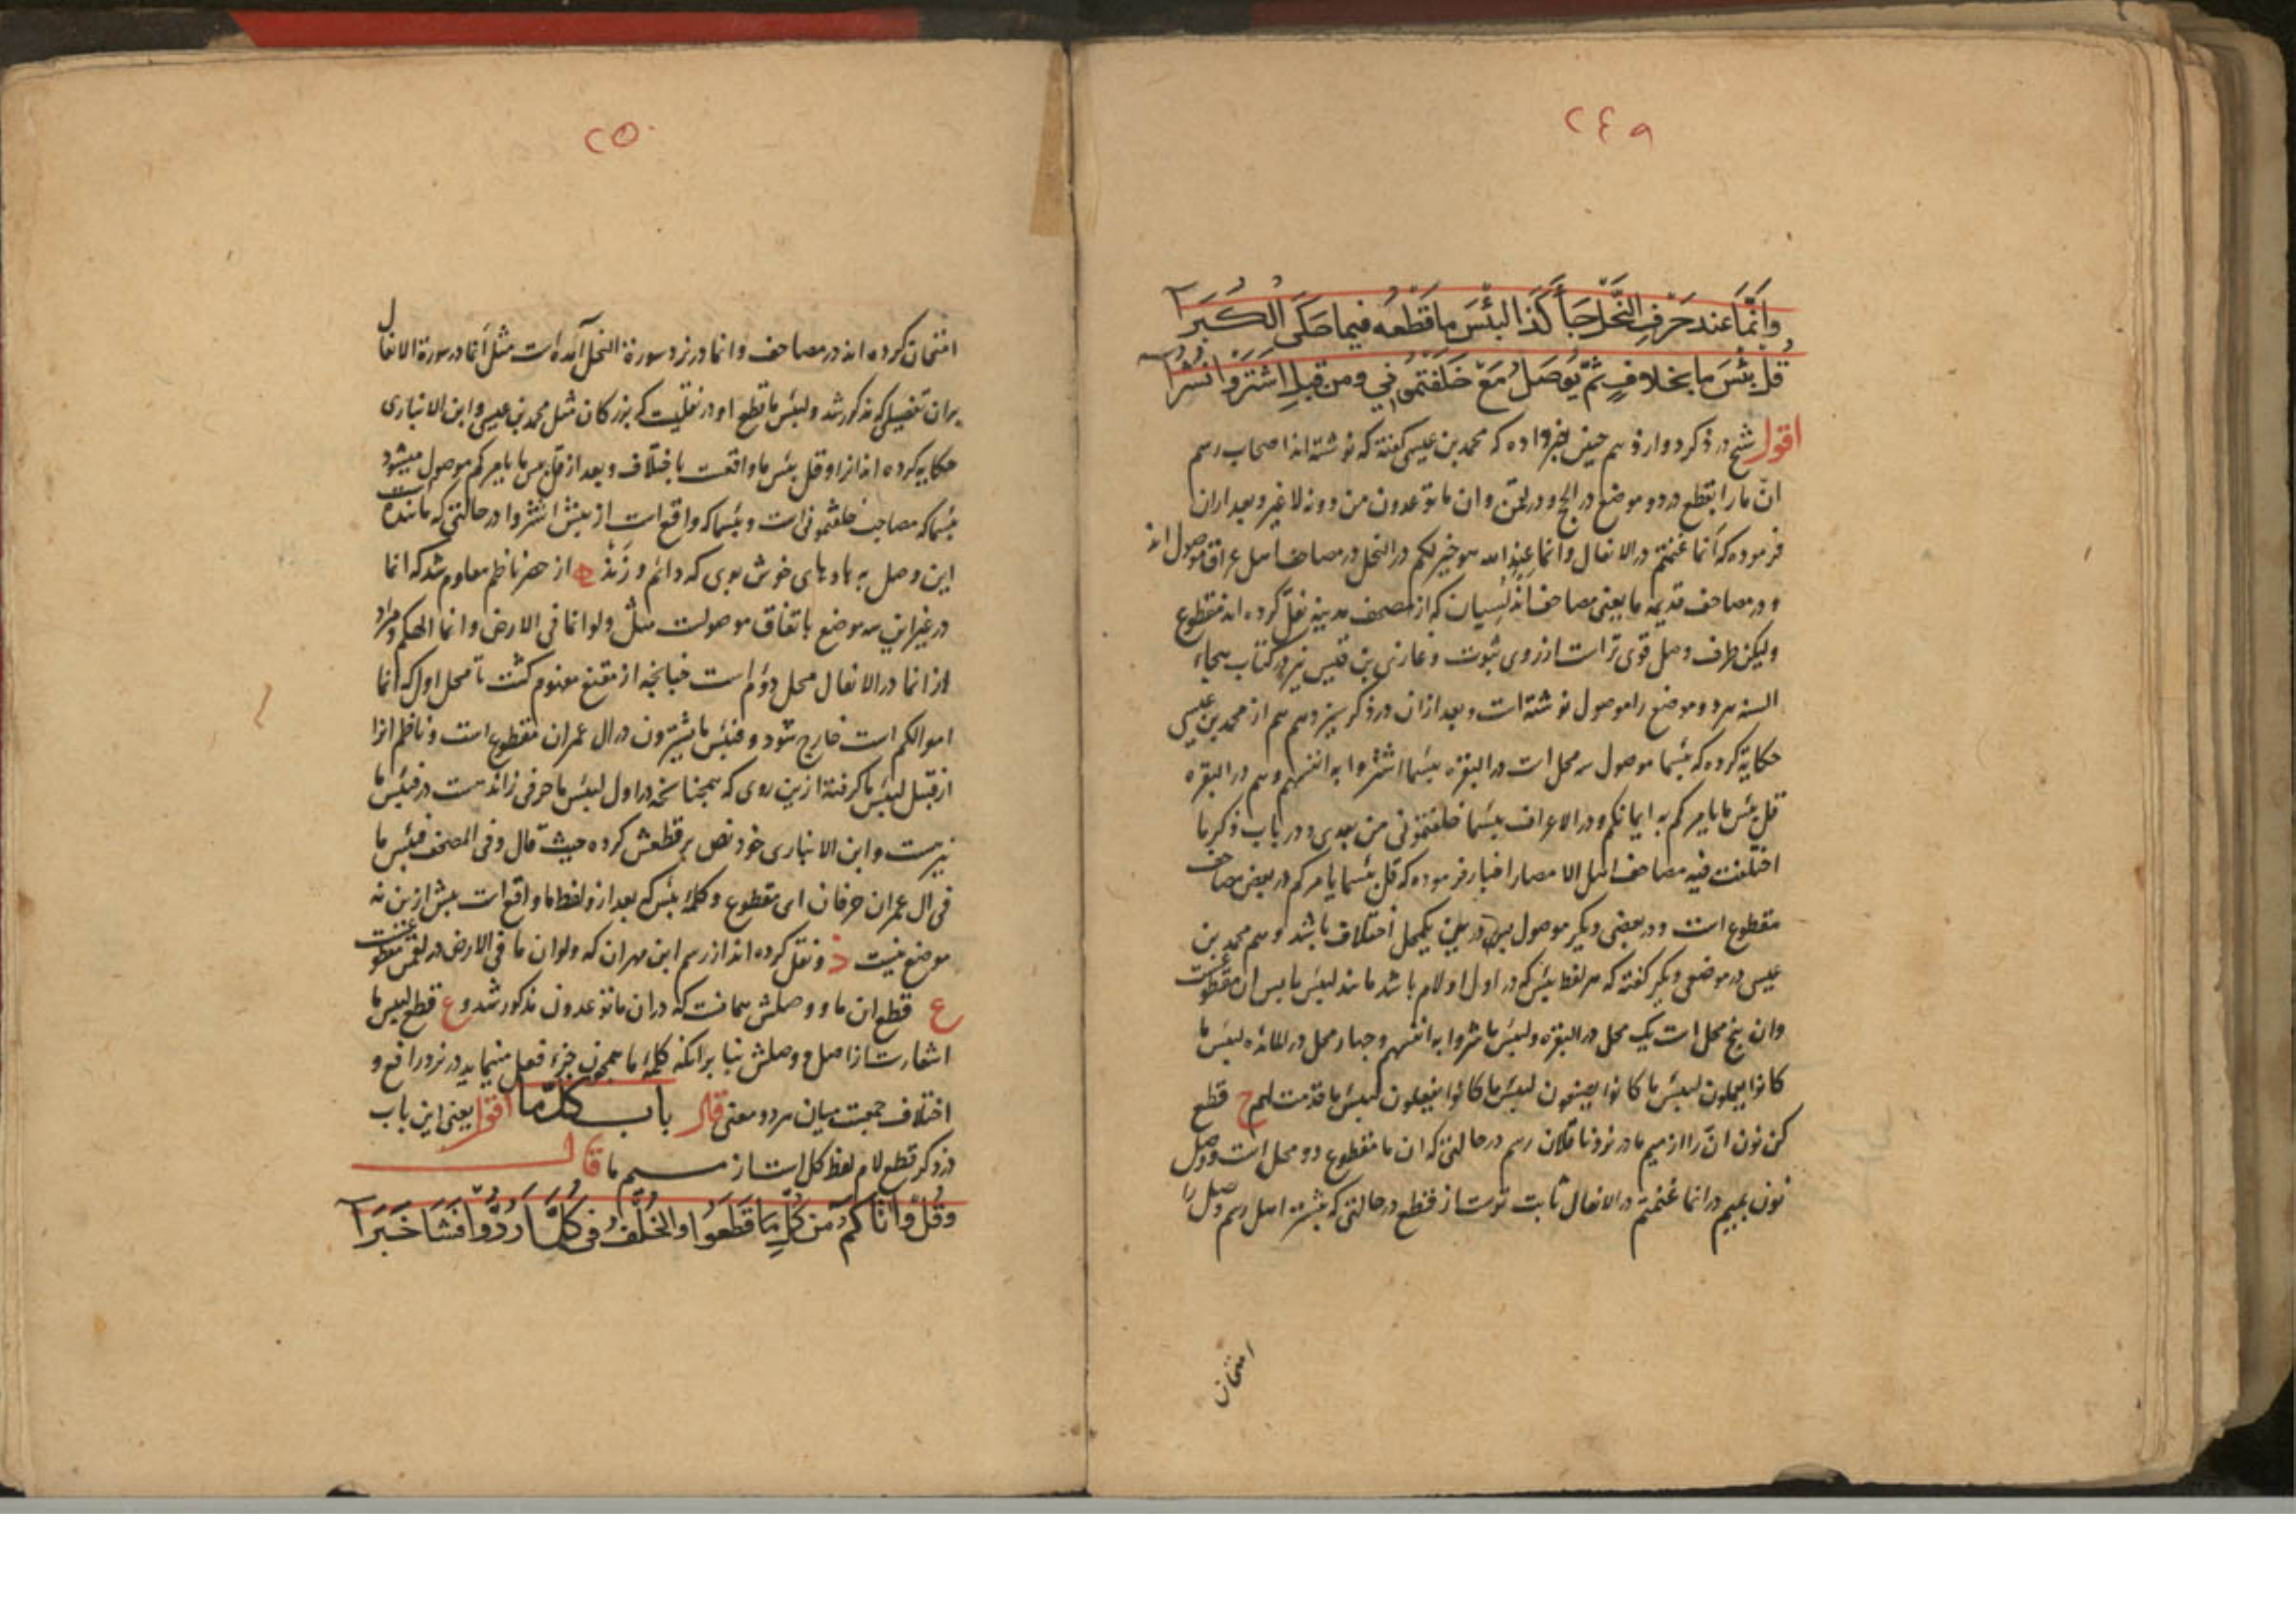 ٢٤٩
وَاَنَّمَا عند حَرْفِ النَّحْلِ جَآءَ كَذَا لَبِئْسَ مَا قَطْعُه فيما حَكَى الْكُبَرَا
قُلْ بِئْسَ ما بخلافٍ ثُمّ يُوصَلُ مَعْ خَلَفْتُمُونِي ومن قبلِ اشْتَرَوْا نُشُرَا
اقول شیخ در ذکر دوازدهم چنین خبر داده که محمد بن عیسی گفته که نوشته‌اند اصحاب رسم
انّ ما را بقطع در دو موضع در الحج و در لقمن و ان ما توعدون من دونه لا غیر و بعد ازان
فرموده که أنما غنمتم در الانفال و انما عند الله هو خیر لکم در النحل در مصاحف اهل عراق موصول‌اند
و در مصاحف قدیمه ما یعنی مصاحف اندلسیان که از مصحف مدینه نقل کرده‌اند مقطوع
ولیکن طرف وصل قوی‌تر است از روی ثبوت و غازی بن قیس نیز در کتاب هجاء
السنه هر دو موضع را موصول نوشته است و بعد ازان در ذکر سیزدهم هم از محمد بن عیسی
حکایة کرده که بئسما موصول سه محل است در البقره بئسما اشتروا به انفسهم و هم در البقره
قل بئس ما یامرکم به ایمانکم و در الاعراف بئسما خلفتمونی من بعدی و در باب ذکر ما
اختلفت فیه مصاحف اهل الامصار اخبار فرموده که قل بئسما یامرکم در بعض مصاحف
مقطوع است و در بعضی دیگر موصول پس درین یکمحل اختلاف باشد و هم محمد بن
عیسی در موضعی دیگر گفته که هر لفظ بئس که در اول او لام باشد مانند لبئس ما پس ان مقطوعست
وان پنج محل است یک محل در البقره ولبئس ما شروا به انفسهم و چهار محل در المائده لبئس ما
کانوا یعملون لبئس ما کانوا یصنعون لبئس ما کانوا یفعلون لبئس ما قدمت لهم ح قطع
کن نون انّ را از میم ما در نزد ناقلان رسم در حالتی که ان ما مقطوع دو محل است و وصل
نون بمیم در انما غنمتم در الانفال ثابت تر است از قطع در حالتی که بیشتر اهل رسم وصل را
امتحان
٢٥٠
امتحان کرده‌اند در مصاحف و انما در نزد سورة النحل آمده است مثل أنما در سورة الانفال
بران تفصیلی که مذکور شد و لبئس ما قطع او در نقلیست که بزرگان مثل محمد بن عیسی و ابن الانباری
حکایه کرده‌اند انرا و قل بئس ما واقعست باختلاف و بعد از قل بئس ما یامرکم موصول میشود
بئسما که مصاحب خلفتمونی است و بئسما که واقع است از پیش اشتروا در حالتی که ماننده است
این وصل به بادهای خوش بوی که دائم وزند ه از حصر ناظم معلوم شد که انما
در غیر این سه موضع باتفاق موصولست مثل ولو انما فی الارض و انما الهکم و مراد
از انما در الانفال محل دوم است چنانچه از مقنع مفهوم گشت تا محل اول که انما
اموالکم است خارج شود و فبئس ما یشترون در ال عمران مقطوع است و ناظم انرا
از قبیل لبئس ما گرفته ازین روی که همچنانچه در اول لبئس ما حرفی زائدست در فبئس ما
نیزست و ابن الانباری خود نص بر قطعش کرده حیث قال و فی المصحف فبئس ما
فی ال عمران حرفان ای مقطوع و کلمهٔ بئس که بعد ازو لفظ ما واقع است بیش ازین نه
موضع نیست ذ و نقل کرده‌اند از رسم ابن مهران که ولو ان ما فی الارض در لقمن مقطوعست
ع قطع ان ما و وصلش همانست که در ان ما توعدون مذکور شد و ع قطع لبئس ما
اشعارست از اصل و وصلش بنا برانکه کلمهٔ ما همچون جزء فعل مینماید در نزد رافع و
اختلاف جمعست میان هر دو معنی قال باب كلّ ما اقول یعنی این باب
در ذکر قطع لام لفظ کل است از میم ما قال
وَقُلْ وَاٰتَاكُمُ مِنْ كُلِّ مَا قَطَعُوا والخُلْفُ فى كُلَّمَا رُدُّوا فَشَا خَبَرَا